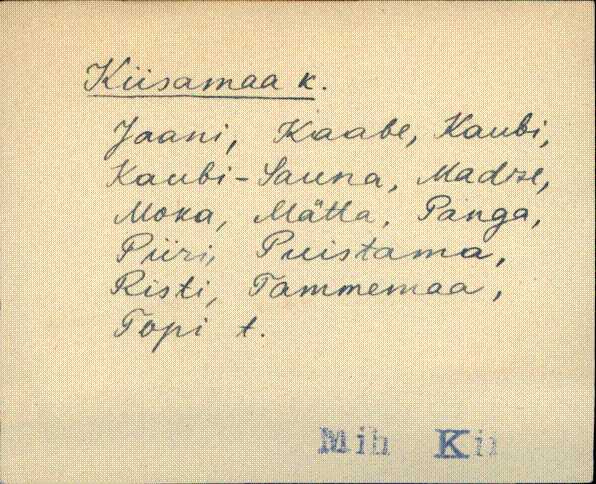 Kiisamaa k.
Jaani, Kaabe, Kaubi,
Kaubi-Sauna, Madise,
Moka, Mätta, Panga,
Piiri, Puistama,
Risti, Tammemaa,
Topi t.
Mih Kii